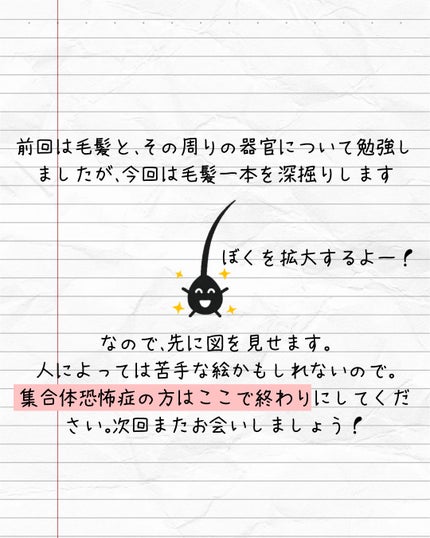 前回は毛髪と、その周りの器官について勉強し
ましたが、今回は毛髪一本を深掘りします
ぼくを拡大するよー！
なので、先に図を見せます。
人によっては苦手な絵かもしれないので。
集合体恐怖症の方はここで終わりにしてくだ
さい。次回またお会いしましょう！